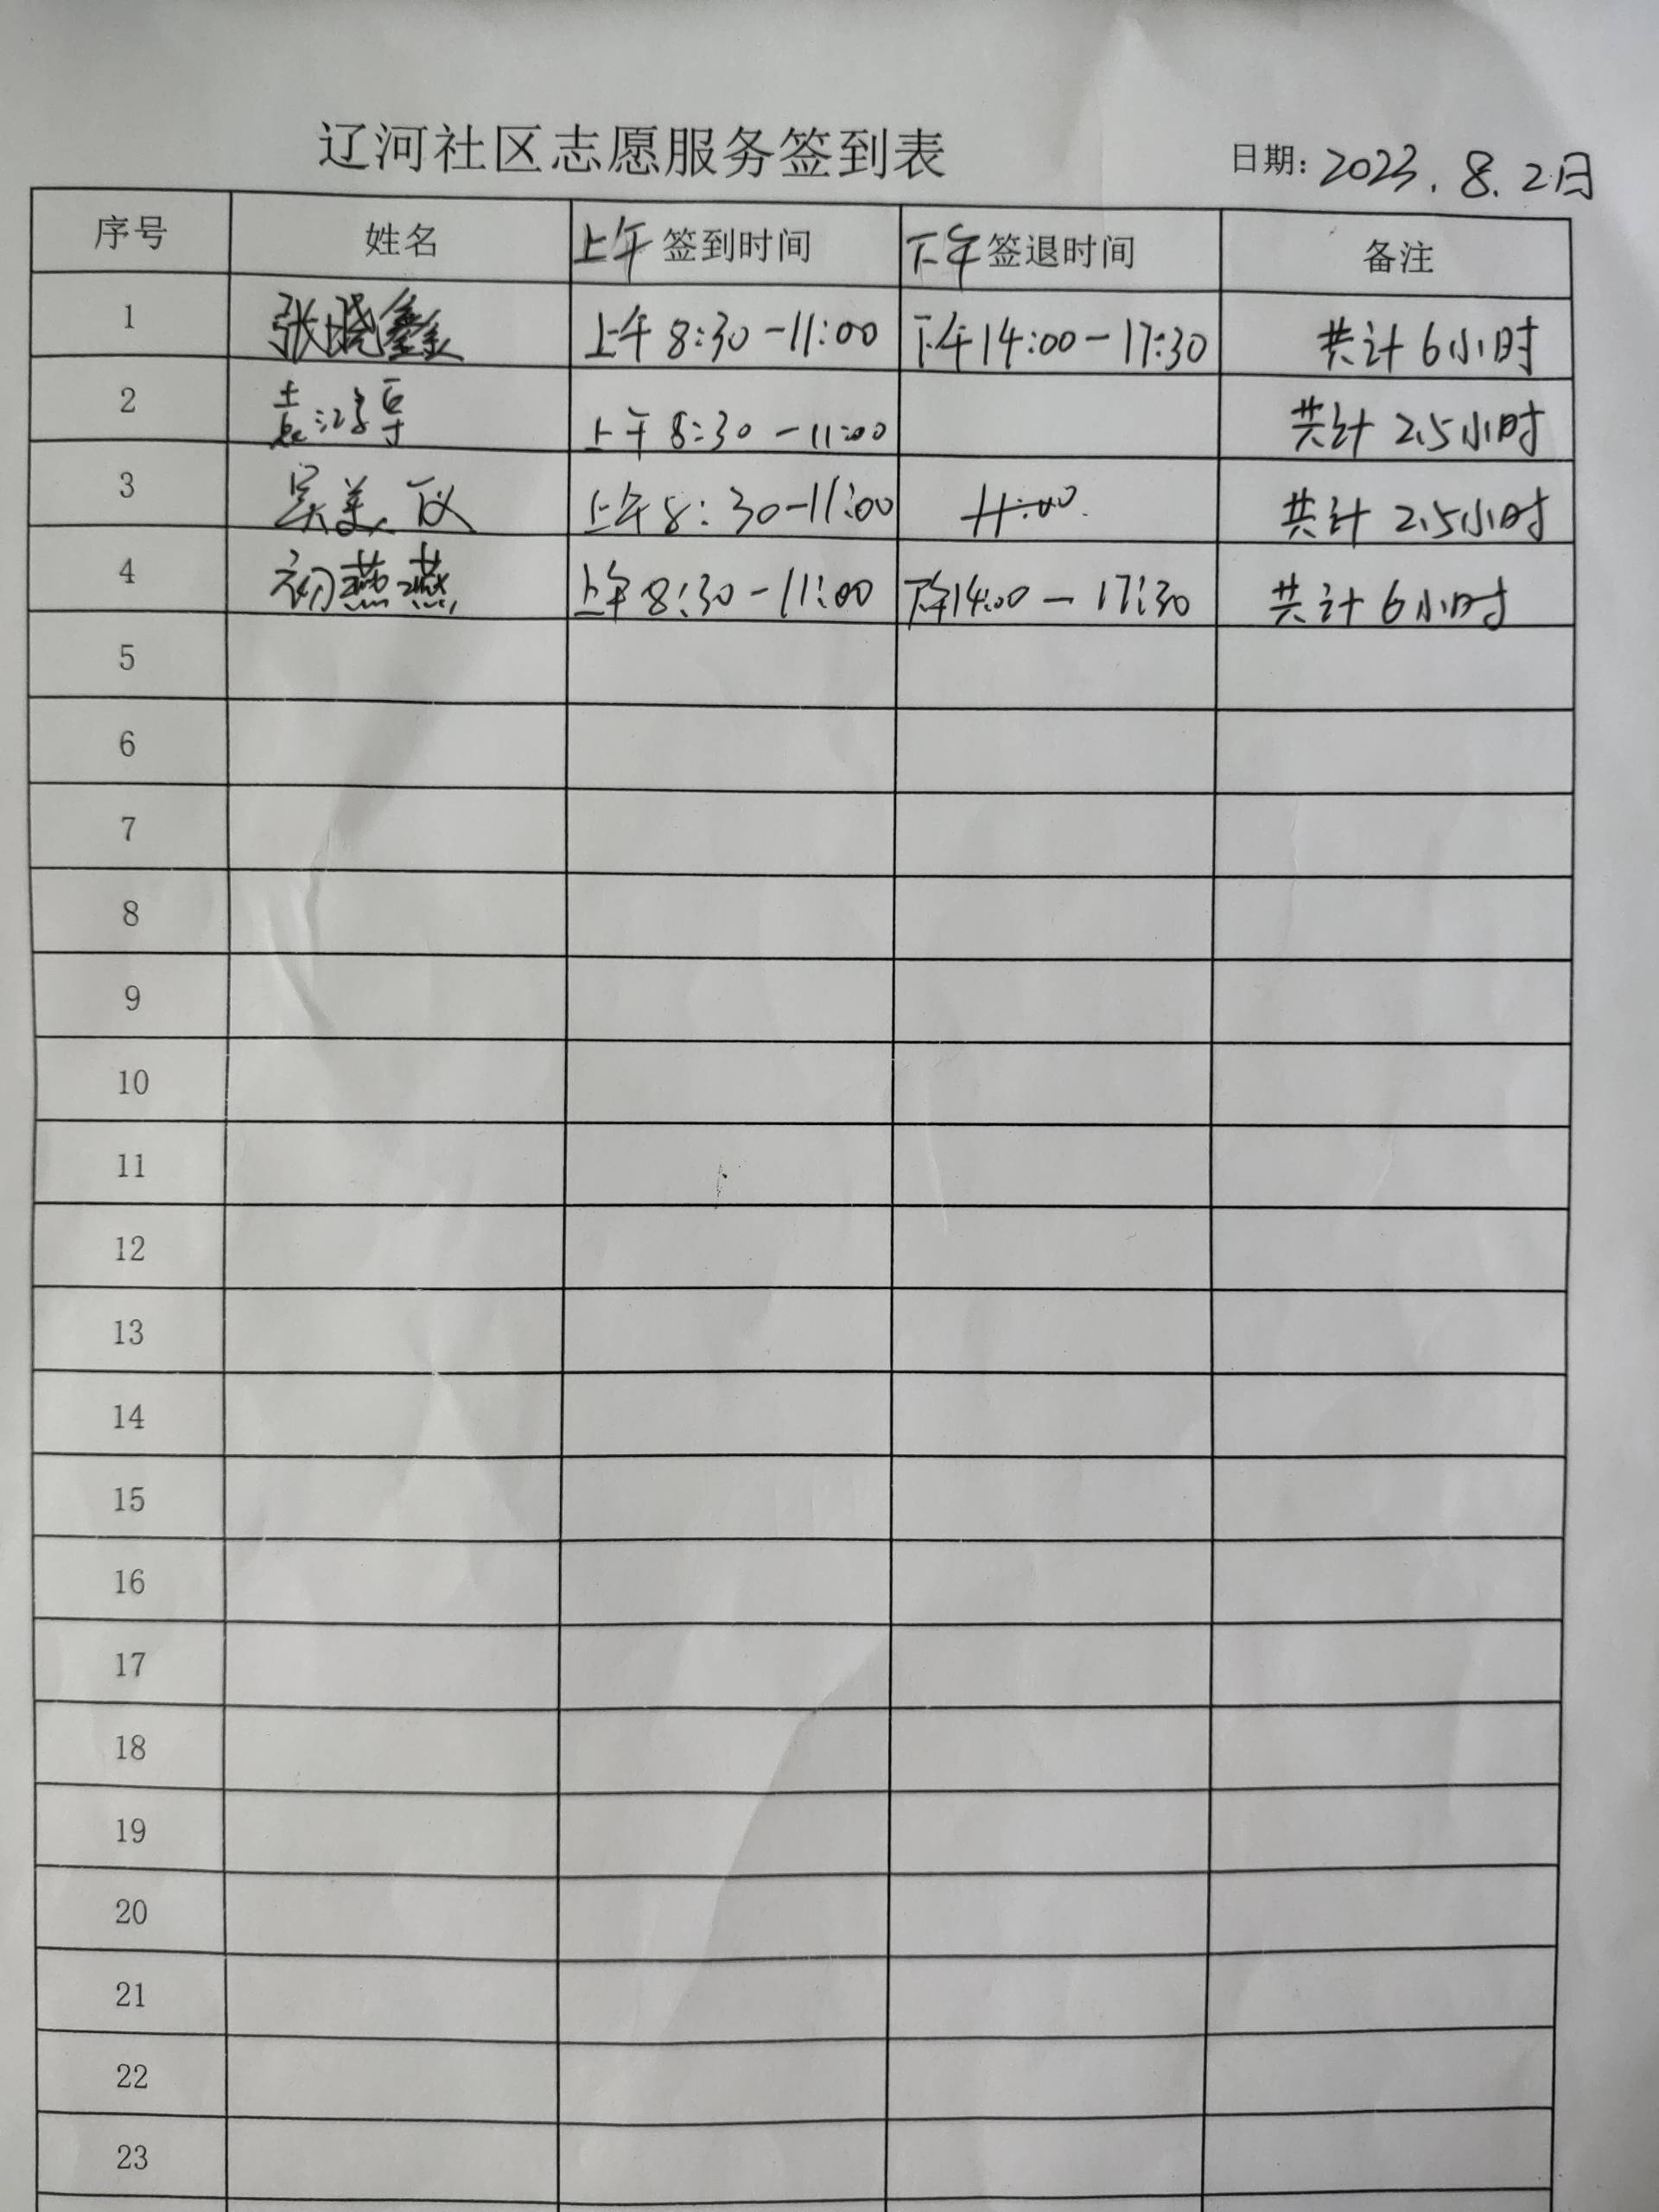 辽河社区志愿服务签到表 日期: 2023.8.2日
序号 姓名 上午签到时间 下午签退时间 备注
1 张晓鑫 上午8:30-11:00 下午14:00-17:30 共计6小时
2 袁 上午8:30-11:00 共计2.5小时
3 吴美仪 上午8:30-11:00 11:00. 共计2.5小时
4 初燕燕 上午8:30-11:00 下午14:00-17:30 共计6小时
5
6
7
8
9
10
11
12
13
14
15
16
17
18
19
20
21
22
23